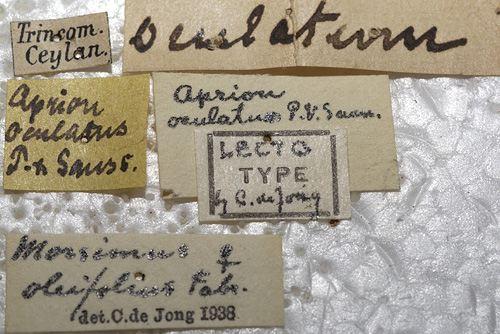 Trincom.
Ceylan.
oculatum
Aprion
oculatus
Aprion
oculatus P.V. Sauss.
LECTO
TYPE
by C. de Jong
♀
oleifolius Fab.
det. C. de Jong 1938